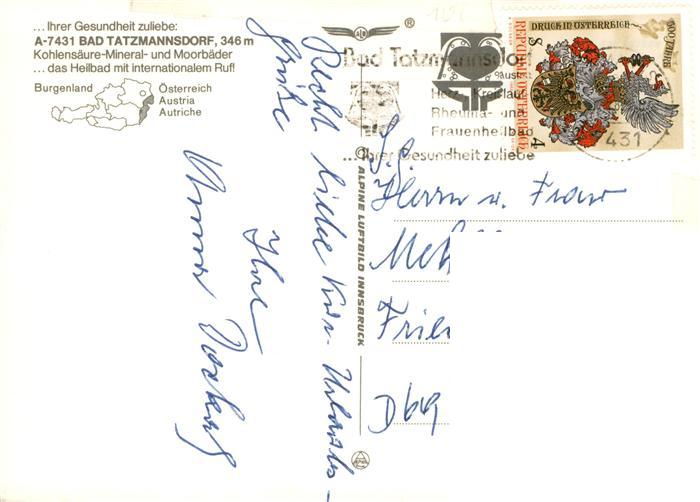 ... Ihrer Gesundheit zuliebe:
A-7431 BAD TATZMANNSDORF, 346 m
Kohlensäure-Mineral- und Moorbäder
... das Heilbad mit internationalem Ruf!
Burgenland
Österreich
Austria
Autriche
Recht liebe Kur-Urlaubs-
grüße
Ihre
®
Bad Tatzmannsdorf
Herz- Kreislauf
Rheuma- und
Frauenheilbad
...Ihrer Gesundheit zuliebe
431
500 JAHRE
DRUCK IN ÖSTERREICH
REPUBLIK ÖSTERREICH
S 4
© ALPINE LUFTBILD INNSBRUCK
Herrn u. Frau